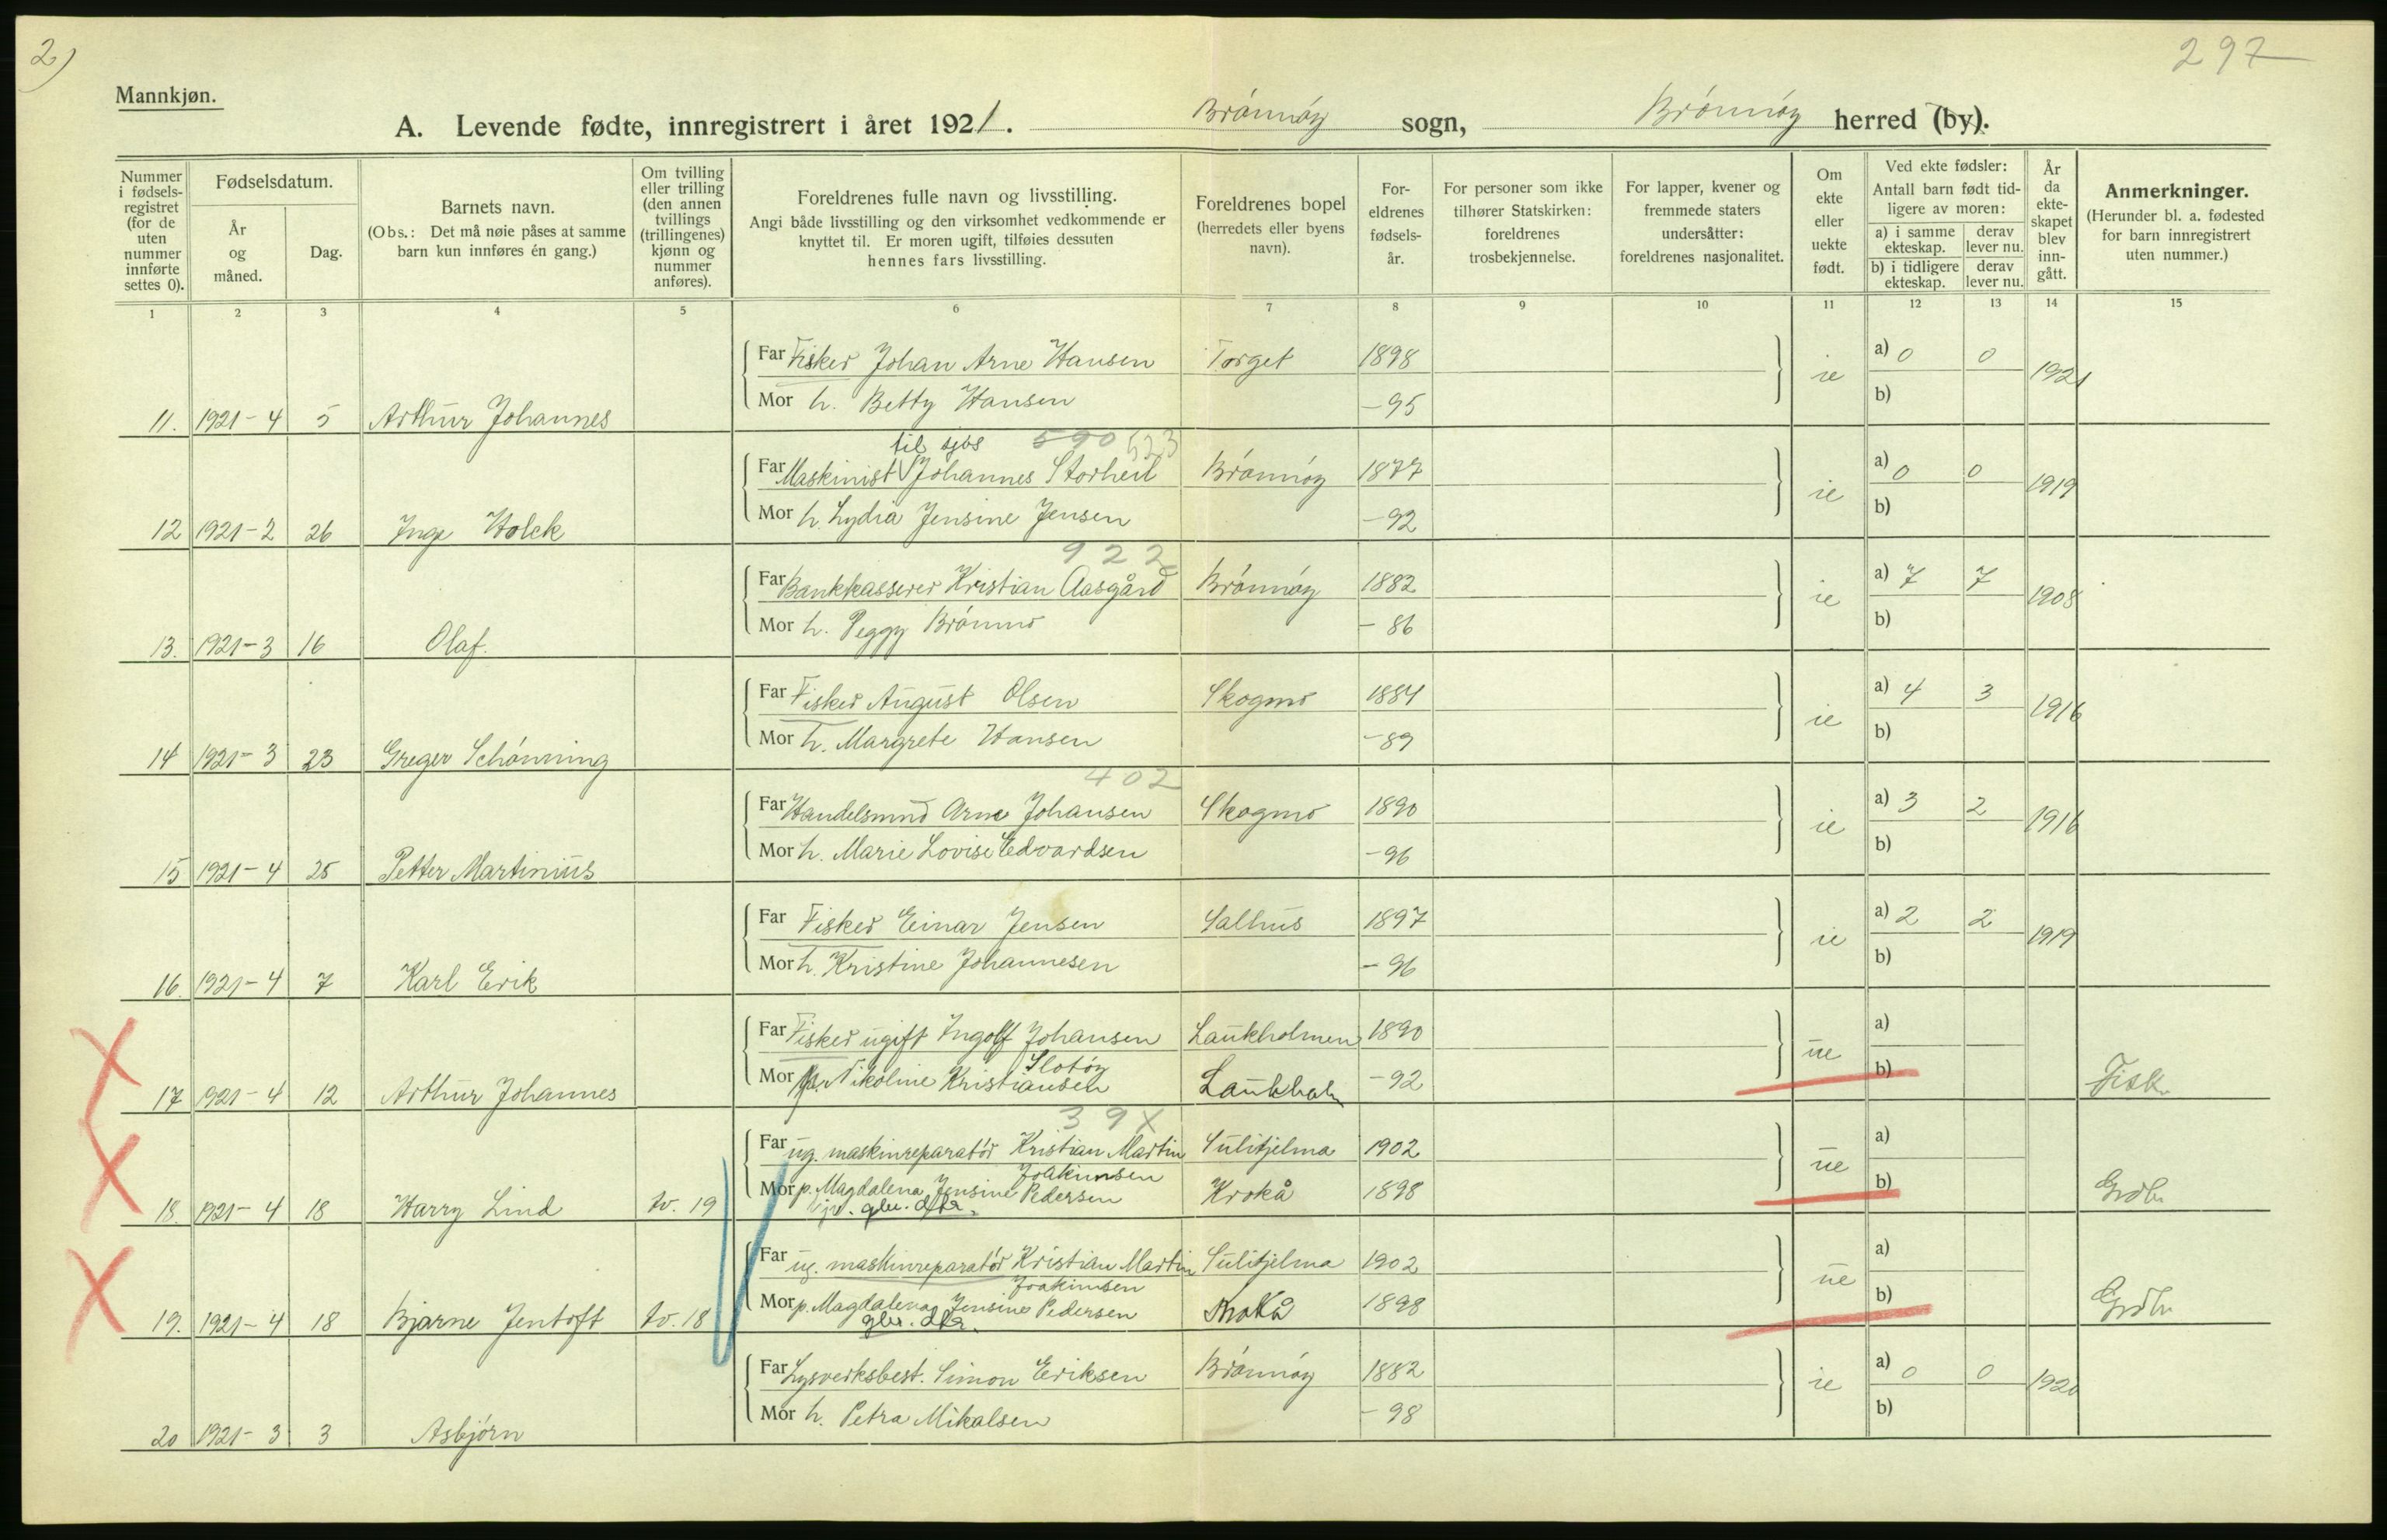 2)
297
Mannkjøn.
A. Levende fødte, innregistrert i året 1921. Brønnøy sogn, Brønnøy herred (by).
Nummer i fødselsregistret (for de uten nummer innførte settes 0).
Fødselsdatum.
År og måned.
Dag.
Barnets navn.
(Obs.: Det må nøie påses at samme barn kun innføres én gang.)
Om tvilling eller trilling (den annen tvillings (trillingenes) kjønn og nummer anføres).
Foreldrenes fulle navn og livsstilling.
Angi både livsstilling og den virksomhet vedkommende er knyttet til. Er moren ugift, tilføies dessuten hennes fars livsstilling.
Foreldrenes bopel (herredets eller byens navn).
Foreldrenes fødselsår.
For personer som ikke tilhører Statskirken: foreldrenes trosbekjennelse.
For lapper, kvener og fremmede staters undersåtter: foreldrenes nasjonalitet.
Om ekte eller uekte født.
Ved ekte fødsler:
Antall barn født tidligere av moren:
a) i samme ekteskap. derav lever nu.
b) i tidligere ekteskap. derav lever nu.
År da ekteskapet blev inngått.
Anmerkninger.
(Herunder bl. a. fødested for barn innregistrert uten nummer.)
1 2 3 4 5 6 7 8 9 10 11 12 13 14 15
Far Fisker Johan Arne Hansen Torget 1898 ie a) 0 0 1921
Mor h. Betty Hansen -95 b)
11. 1921-4 5 Arthur Johannes
til sjøs 590 523
Far Maskinist Johannes Storheil Brønnøy 1877 ie a) 0 0 1919
Mor h. Lydia Jensine Jensen -92 b)
12 1921-2 26 Inge Holck
922
Far Bankkasserer Kristian Aasgård Brønnøy 1882 ie a) 7 7 1908
Mor h. Peggy Brømmo -86 b)
13. 1921-3 16 Olaf.
Far Fisker August Olsen Skogmo 1884 ie a) 4 3 1916
Mor h. Margrete Hansen -89 b)
14 1921-3 23 Greger Schønning
402
Far Handelsmnd Arne Johansen Skogmo 1890 ie a) 3 2 1916
Mor h. Marie Lovise Edvardsen -96 b)
15 1921-4 25 Petter Martinius
Far Fisker Einar Jensen Salhus 1897 ie a) 2 2 1919
Mor h. Kristine Johannesen -96 b)
16. 1921-4 7 Karl Erik
Far Fisker ugift Ingolf Johansen Laukholmen 1890 ue a)
Slotøy
Mor p. Nikoline Kristiansen Laukholm -92 b) Fisk
17 1921-4 12 Arthur Johannes
39X
Far ug. maskinreparatør Kristian Martin Sulitjelma 1902 ue a)
Joakimsen
Mor p. Magdalena Jensine Pedersen Krokå 1898 b) Grdbr
gbr. dtr.
18. 1921-4 18 Harry Lind tv. 19
Far ug. maskinreparatør Kristian Martin Sulitjelma 1902 ue a)
Joakimsen
Mor p. Magdalena Jensine Pedersen Krokå 1898 b) Grdbr
gbr. dtr.
19. 1921-4 18 Bjarne Jentoft tv. 18
Far Lysverksbest. Simon Eriksen Brønnøy 1882 ie a) 0 0 1920
Mor h. Petra Mikalsen -98 b)
20 1921-3 3 Asbjørn